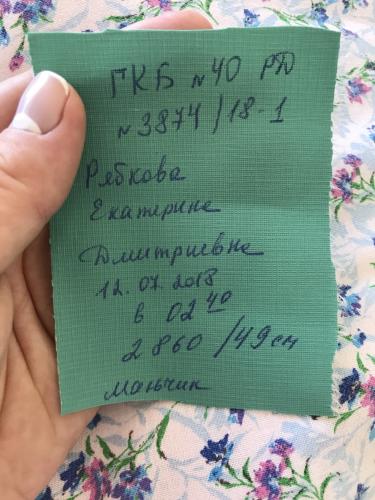 ГКБ №40 РД
№3874/18-1
Рябкова
Екатерина
Дмитриевна
12.07.2018
в 02 40
2860 /49 см
мальчик